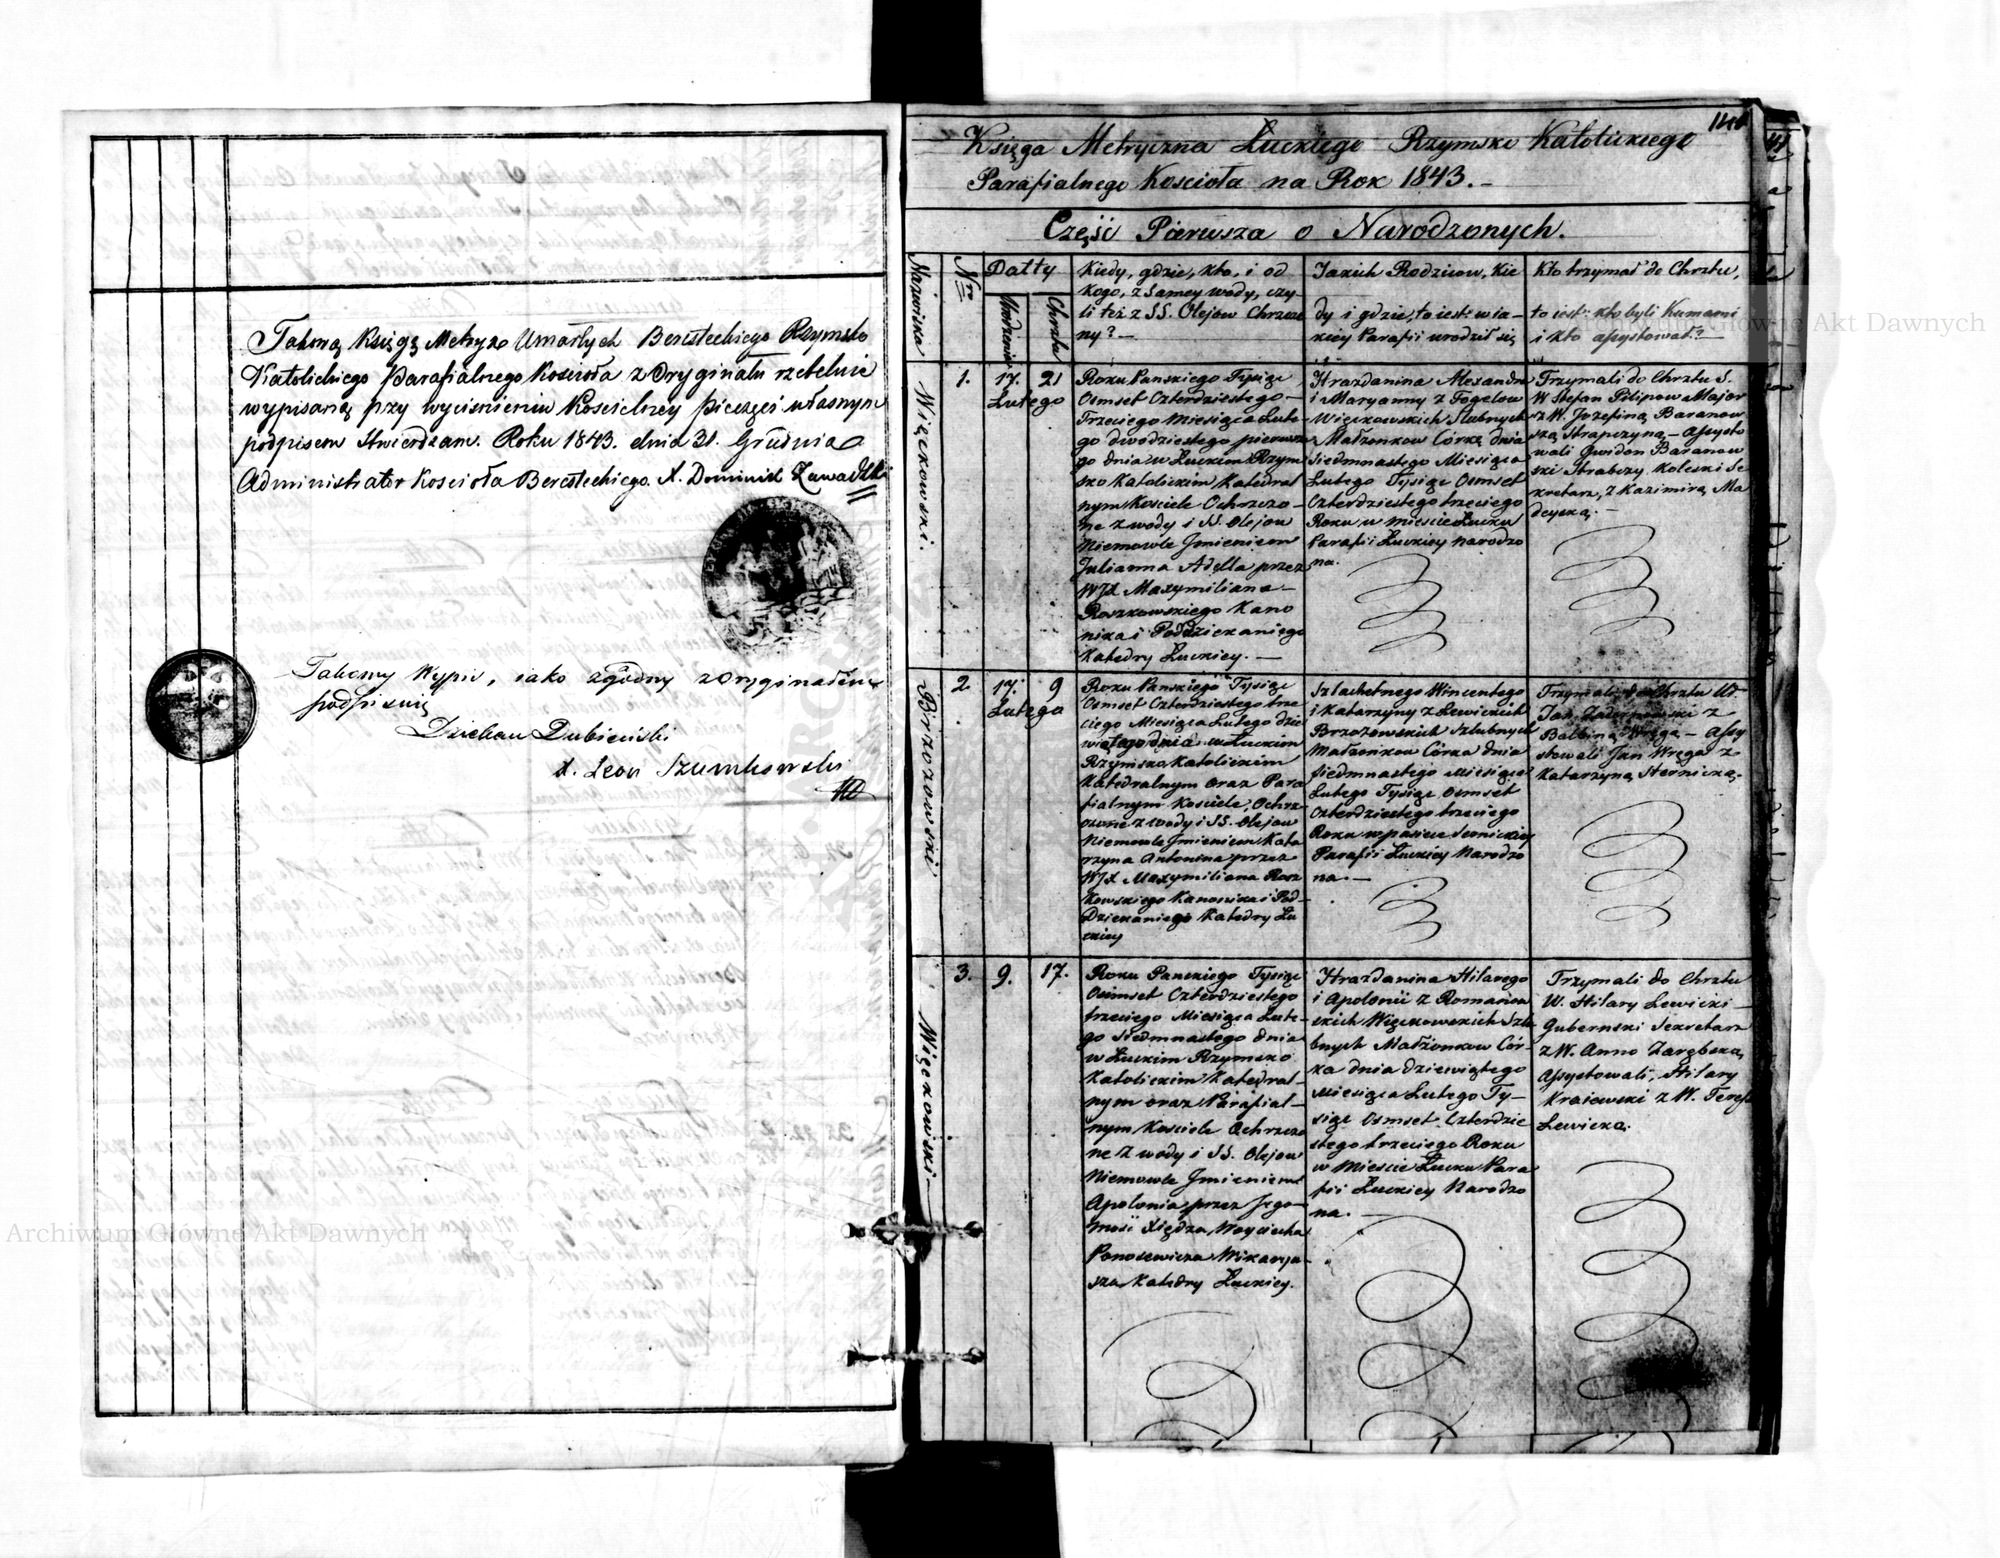 Takową Księgę Metryk Umarłych Beresteckiego Rzymsko
Katolickiego Parafialnego Kościoła z Oryginału rzetelnie
wypisaną przy wyciśnieniu Kościelney pieczęci własnym
podpisem stwierdzam. Roku 1843. dnia 31. Grudnia
Administrator Kościoła Beresteckiego. X. Dominik Zawadzki
Takowy Wypis, iako zgodny z Oryginałem
podpisuię
Dziekan Dubieński
X. Leon Szumkowski
141
Księga Metryczna Łuckiego Rzymsko Katolickiego
Parafialnego Kościoła na Rok 1843.-
Część Pierwsza o Narodzonych.
Nazwiska
Nro
Datty
Urodzenia
Chrztu
Kiedy, gdzie, kto, i od
kogo, z samey wody, czy-
li też z SS. Olejow Chrzczo
ny?-
Jakich Rodzicow, kie
dy i gdzie, to iest: w ia-
kiey Parafii urodził się
Kto trzymał do Chrztu,
to iest: kto byli Kumami
i kto assystował?-
Więckowski.
1.
17.
21
Lutego
Roku Panskiego Tysiąc
Osmset Czterdziestego-
Trzeciego Miesiąca Lute-
go dwodziestego pierwsze
go dnia w Łuckim Rzym
sko Katolickim Katedral
nym Kosciele Ochrzczo-
ne z wody i SS. Olejow
Niemowle Jmieniem
Julianna Adella przez
WJX Maxymiliana-
Roszkowskiego Kano
nika i Poddziekaniego
Katedry Łuckiey.-
Hrazdanina Alexandra
i Maryanny z Fogelow
Więckowskich Slubnych
Małzonkow Córka dnia
Siedmnastego Miesiąca
Lutego Tysiąc Osmset
Czterdziestego trzeciego
Roku w miescie Łucku
Parafii Łuckiey narodzo
na.
Trzymali do Chrztu S.
W Stefan Pilipow Major
z W. Jozefiną Baranow
ską Strapczyną - Assysto
wali Gwidon Baranow
ski Strabczy. Koleski Se
kretarz, z Kazimirą Ma
deyską.-
Brzozowski
2.
17.
9
Lutego
Roku Panskiego Tysiąc
Osmset Czterdziestego trze
ciego Miesiąca Lutego dzie
wiątego dnia w Łuckim
Rzymsko Katolickim
Katedralnym oraz Para
fialnym Kosciele, Ochrz-
czone z wody i SS. Olejow
Niemowle Jmieniem Kata
rzyna Antonina przez
WJX Maxymiliana Rosz
kowskiego Kanonika i Pod-
Dziekaniego Katedry Łu
ckiey
Szlachetnego Wincentego
i Katarzyny z Lewickich
Brzozowskich Szlubnych
Małzonkow Córka dnia
siedmnastego Miesiąca
Lutego Tysiąc Osmset
Czterdziestego trzeciego
Roku w pasiece
Parafii Łuckiey Narodzo
na.-
Trzymali do Chrztu Ur.
Jan z
Balbiną Wręgą - Assy
stowali Jan Wręga z
Katarzyną Sternicką.
Więckowski
3.
9.
17.
Roku Panskiego Tysiąc
Osimset Czterdziestego
trzeciego Miesiąca Lute-
go Siedmnastego dnia
w Łuckim Rzymsko
Katolickim Katedral-
nym oraz Parafial-
nym Kosciele Ochrzczo
ne z wody i SS. Olejow
Niemowle Jmieniem
Apolonia przez Jego-
mość Xiędza Woyciecha
Ponosewicza Wikaryu-
sza Katedry Łuckiey.
Hrazdanina Hilarego
i Apolonii z Romanow
skich Więckowskich Szlu
bnych Małżonkow Cór-
ka dnia dziewiątego
Miesiąca Lutego Ty-
siąc Osmset Czterdzie
stego trzeciego Roku
w Miescie Łucku Para
fii Łuckiey Narodzo
na.-
Trzymali do Chrztu
W. Hilary Lewicki-
Gubernski Sekretarz
z W. Anno Zarębską,
Assystowali, Hilary
Kraiewski z W. Teressą
Lewicką.
Archiwum Główne Akt Dawnych
Archiwum Główne Akt Dawnych